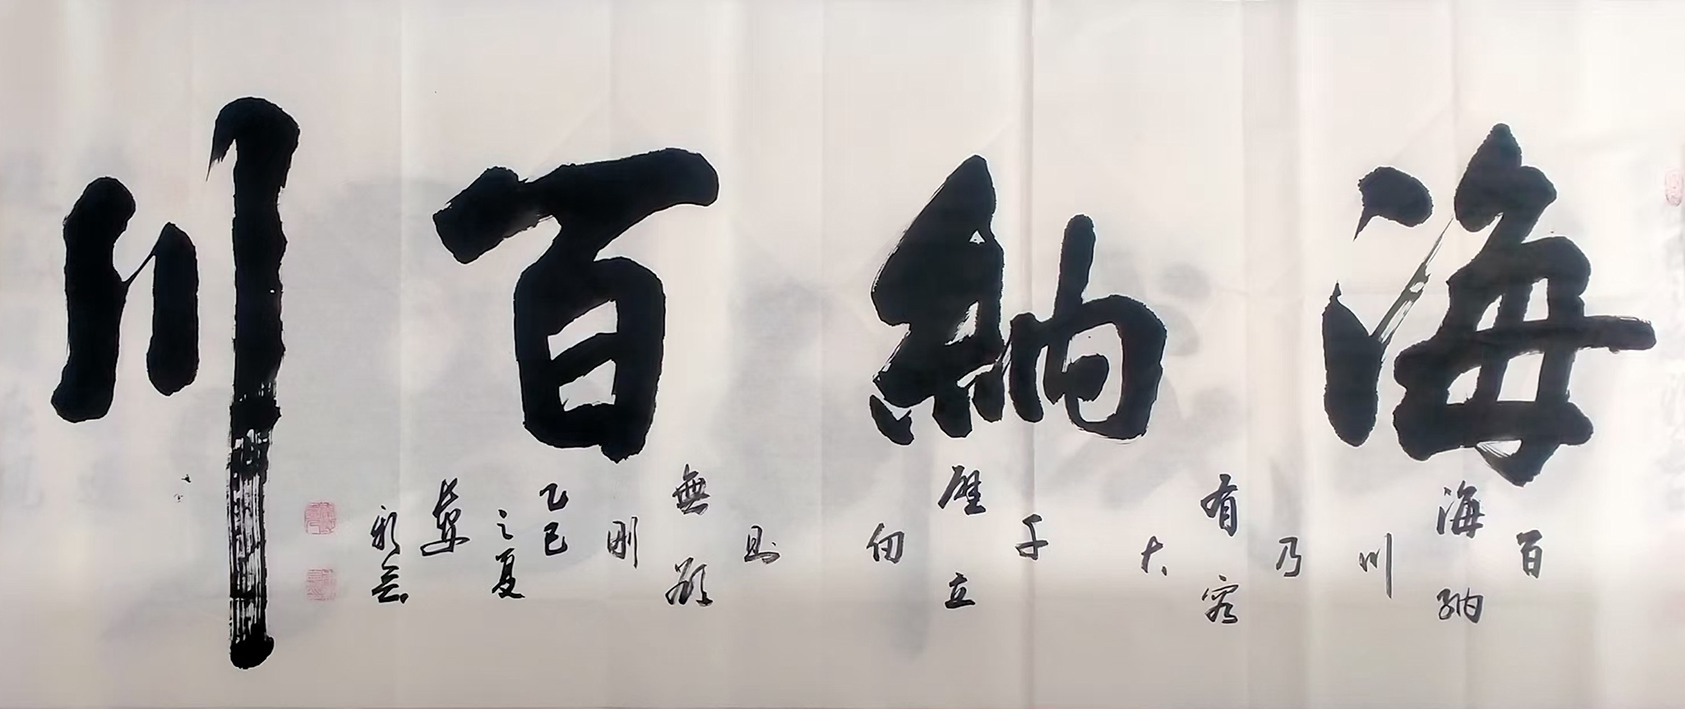 海納百川
海納百川
有容乃大
壁立千仞
無欲則剛
乙巳
之夏